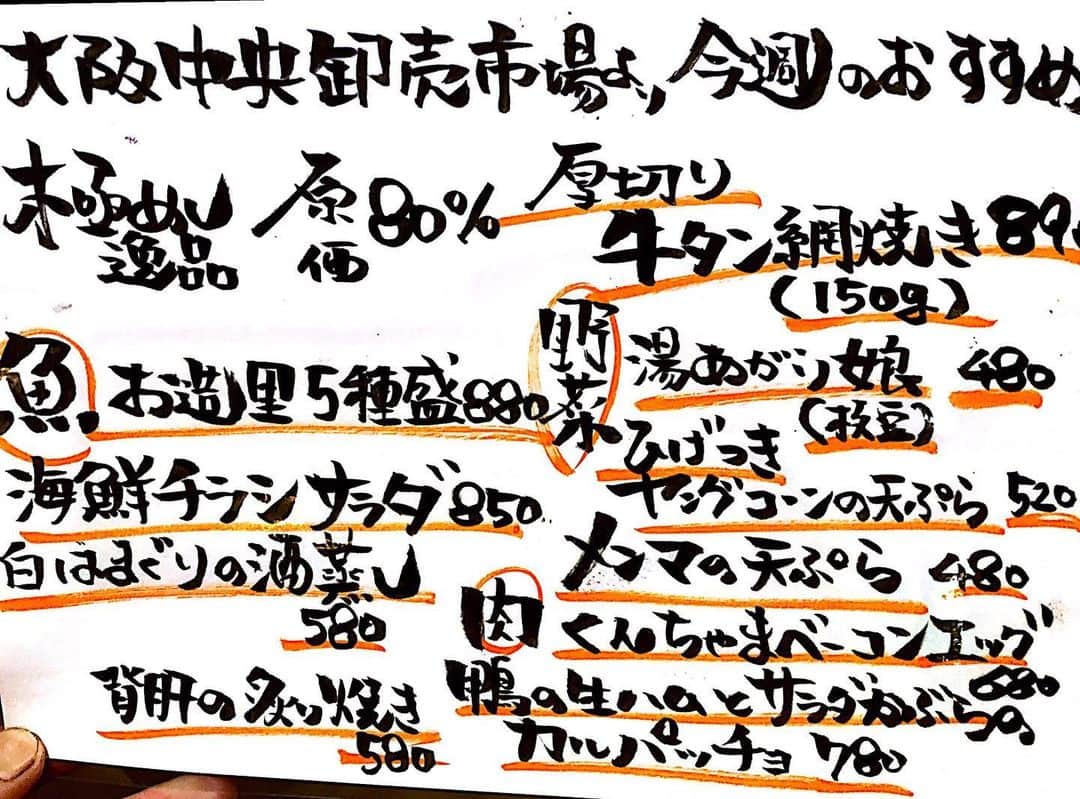 大阪中央卸売市場より今週のおすすめ
極めし
逸品
原価80%
厚切り
牛タン網焼き 89
(150g)
魚
お造里5種盛 880
海鮮チラシサラダ 850
白はまぐりの酒蒸し
580
背肝の炙り焼き
580
野菜
湯あがり娘 480
(枝豆)
ひげつき
ヤングコーンの天ぷら 520
メンマの天ぷら 480
肉
くんちゃまベーコンエッグ
680
鴨の生ハムとサラダかぶらの
カルパッチョ 780